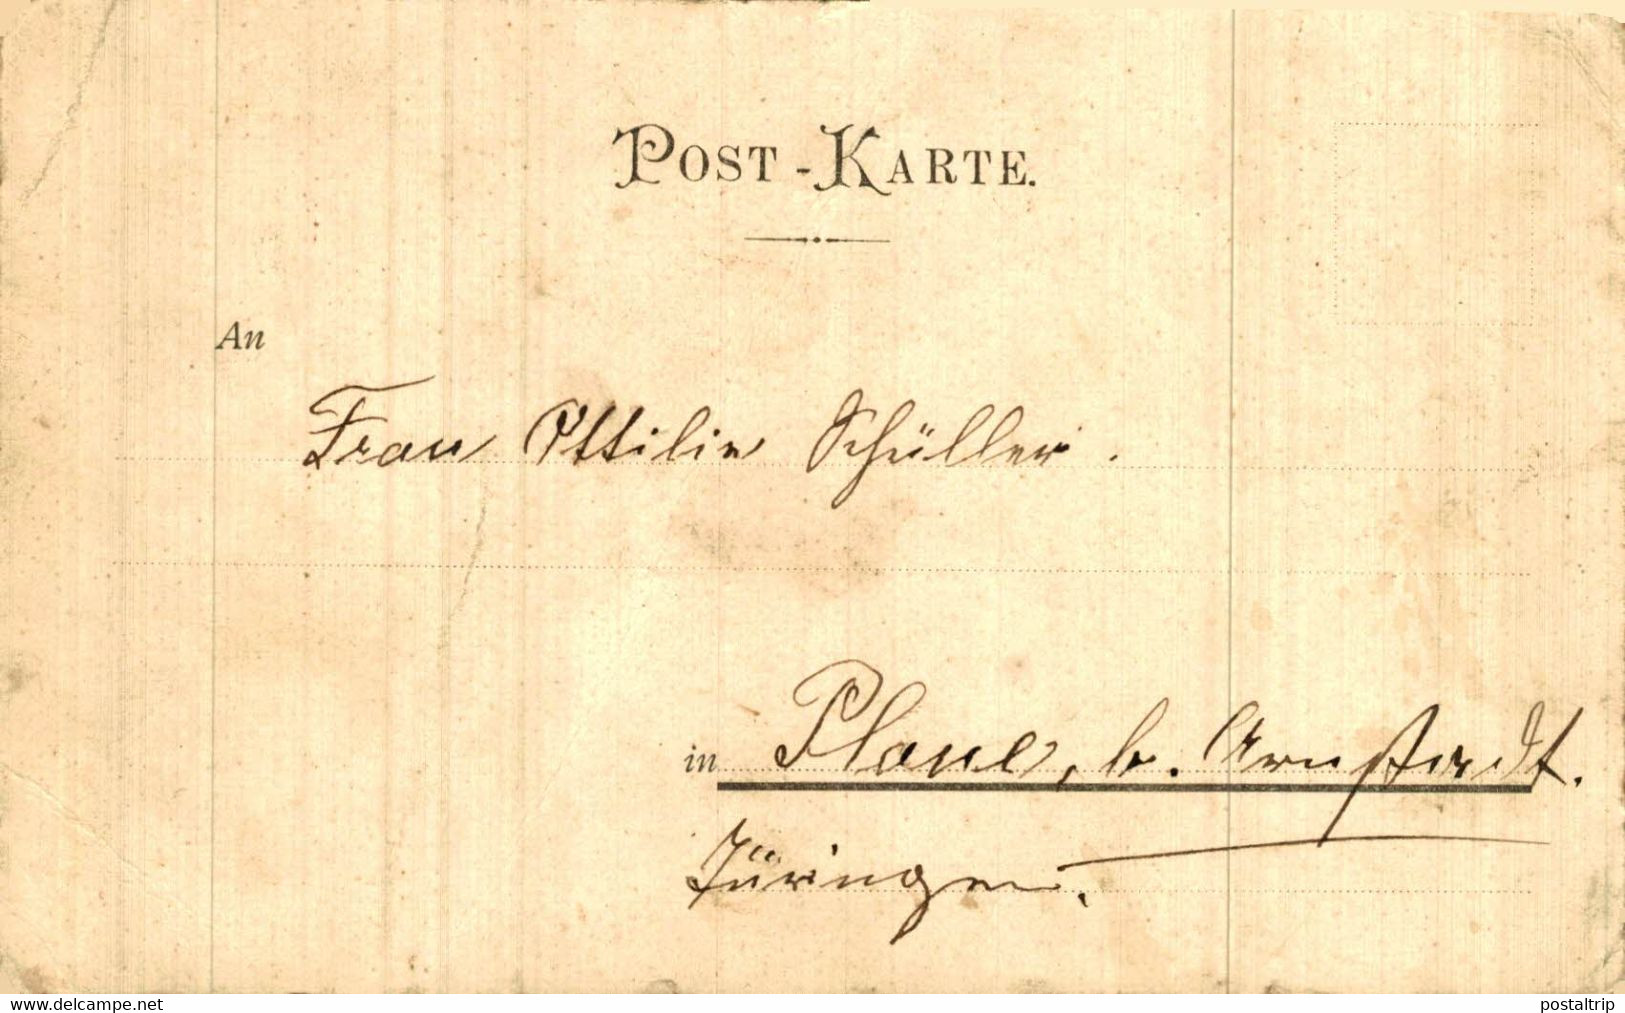 POST-KARTE.
An
Frau Ottilie Schüller.
in Plaue, b. Arnstadt.
Türingen.
www.delcampe.net
postaltrip